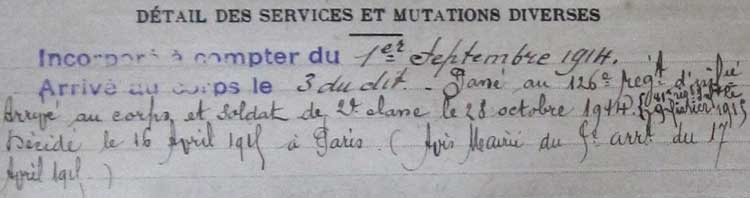 DÉTAIL DES SERVICES ET MUTATIONS DIVERSES
Incorporé à compter du 1er Septembre 1914.
Arrivé au corps le 3 dudit. Passé au 126e régt d'inf
Arrivé au corps et soldat de 2e classe le 28 octobre 1914. février 1915
Décédé le 16 Avril 1915 à Paris (Avis Mairie du 5e arrt du 17
Avril 1915.)